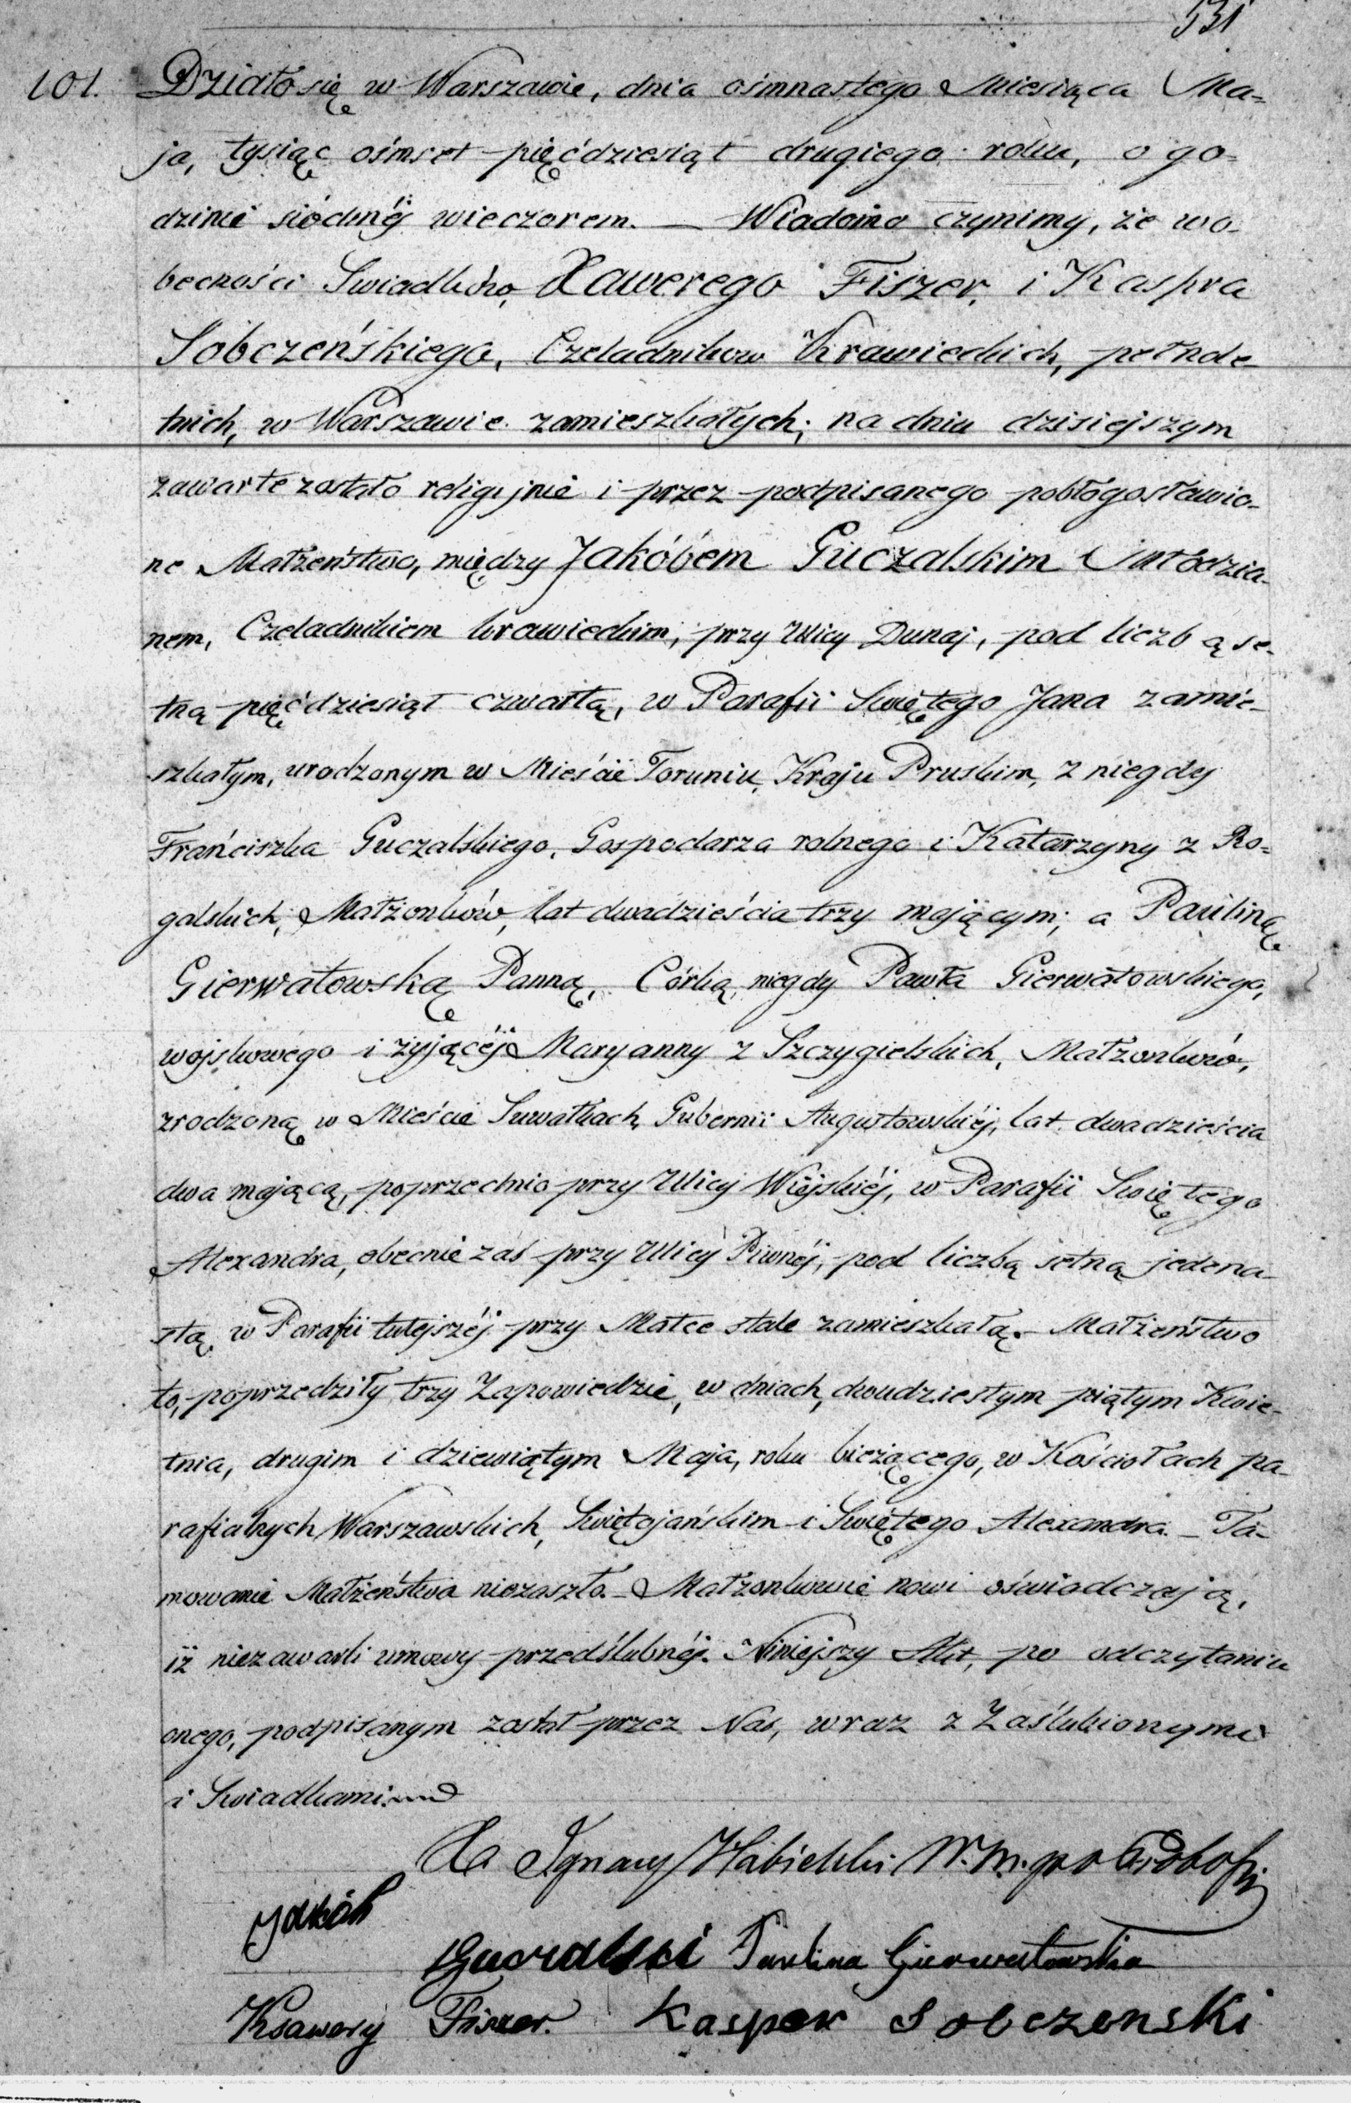 531
101. Działo się w Warszawie, dnia ośmnastego Miesiąca Ma-
ja, tysiąc ośmset pięćdziesiąt drugiego roku, o go-
dzinie siódméj wieczorem. — Wiadomo czynimy, że wo-
becności Swiadków, Xawerego Fiszer, i Kaspra
Sobczeńskiego, Czeladników Krawieckich, pełnole-
tnich, w Warszawie zamieszkałych; na dniu dzisiejszym
zawarte zostało religijnie i przez podpisanego pobłogosławio-
ne Małżeństwo, między Jakóbem Guczalskim Młodzia-
nem, Czeladnikiem krawieckim, przy Ulicy Dunaj, pod liczbą se-
tną pięćdziesiąt czwartą, w Parafii Swiętego Jana zamie-
szkałym, urodzonym w Mieście Toruniu, Kraju Pruskim, z niegdy
Frańciszka Guczalskiego, Gospodarza rolnego i Katarzyny z Ro-
galskich, Małżonków, lat dwadzieścia trzy mającym; a Pauliną
Gierwatowską Panną, Córką niegdy Pawła Gierwatowskiego,
wojskowego i żyjącéj Maryanny z Szczygielskich, Małżonków,
zrodzoną w Mieście Suwałkach, Gubernii Augustowskiéj, lat dwadzieścia
dwa mającą, poprzednio przy Ulicy Wiejskiéj, w Parafii Swiętego
Alexandra, obecnie zaś przy Ulicy Piwnéj, pod liczbą setną jedena-
stą, w Parafii tutejszéj przy Matce stale zamieszkałą. — Małżeństwo
to, poprzedziły trzy Zapowiedzie, w dniach, dwudziestym piątym Kwie-
tnia, drugim i dziewiątym Maja, roku bieżącego, w Kościołach pa-
rafialnych Warszawskich, Swiętojańskim i Swiętego Alexandra. — Ta-
mowanie Małżeństwa niezaszło. — Małżonkowie nowi oświadczają,
iż niezawarli umowy przedślubnéj. Niniejszy Akt, po odczytaniu
onego, podpisanym został przez Nas, wraz z Zaślubionymi
i Swiadkami.
Ignacy
Jakób
Guczalski Paulina Gierwatowska
Ksawery Fiszer. Kasper Sobczenski